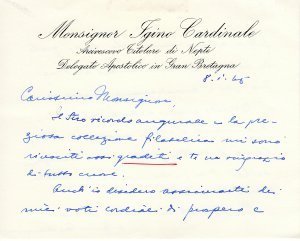 Monsignor Igino Cardinale
Arcivescovo Titolare di Nepte
Delegato Apostolico in Gran Bretagna
8.1.65
Carissimo Monsignore,
Il tuo ricordo augurale e la pre-
ziosa collezione filatelica mi sono
riusciti assai graditi e te ne ringrazio
di tutto cuore.
Anch'io desidero assicurarti dei
miei voti cordiali di prospero e